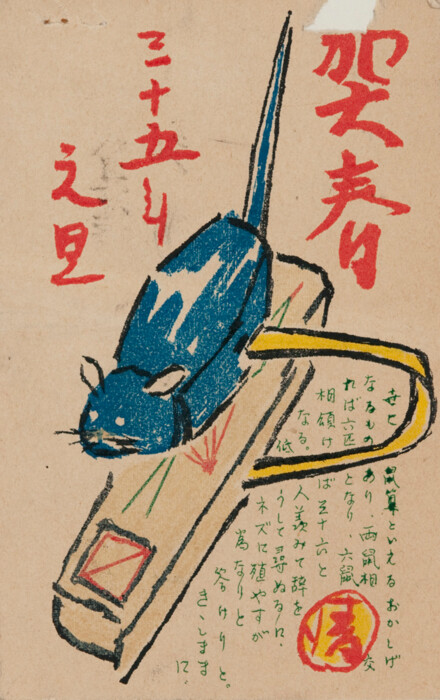 賀春
三十五年
元旦
世に鼠算といえるおかしげ
なるものあり、両鼠相交
れば六匹となり、六鼠
相傾けば五十六と
なる。人羨みて辞を
低うして尋ぬるに、
ネズに殖やすが
嵩なりと
答けりと。
きゝしまま
に。
清